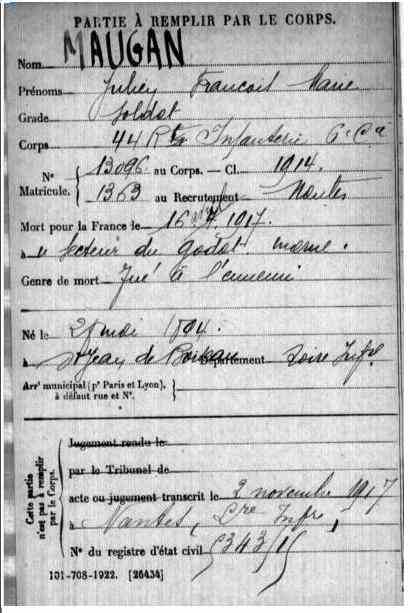 PARTIE À REMPLIR PAR LE CORPS.
Nom MAUGAN
Prénoms Julien François Marie
Grade Soldat
Corps 44 Rt Infanterie 6e Cie
N° 13096 au Corps. — Cl. 1914.
Matricule. 1363 au Recrutement Nantes
Mort pour la France le 16 1917.
à secteur du marne.
Genre de mort Tué à l'ennemi
Né le mai
à St Jean de Boiseau Département Loire Infre
Arrt municipal (pr Paris et Lyon),
à défaut rue et N°.
Cette partie
n'est pas à remplir
par le Corps.
Jugement rendu le
par le Tribunal de
acte ou jugement transcrit le 2 novembre 1917
à Nantes, Lre Infre,
N° du registre d'état civil 343/15
101-708-1922. [26434]